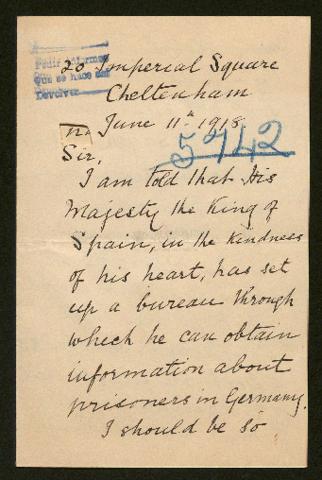 Pedir informes
que se hace con
Devolver
20 Imperial Square
Cheltenham
June 11th 1918
5742
Sir,
I am told that His
Majesty the King of
Spain, in the kindness
of his heart, has set
up a bureau through
which he can obtain
information about
prisoners in Germany.
I should be so